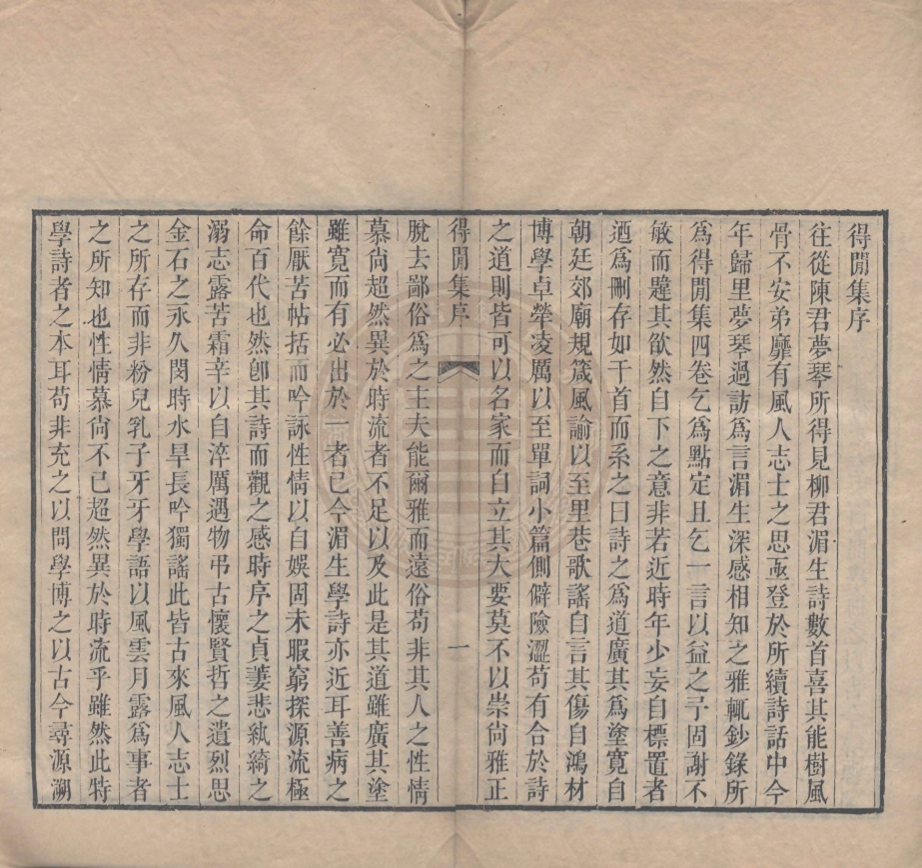 得閒集序
往從陳君夢琴所得見柳君湄生詩數首喜其能樹風
骨不安弟靡有風人志士之思亟登於所續詩話中今
年歸里夢琴過訪爲言湄生深感相知之雅輒鈔錄所
爲得閒集四卷乞爲點定且乞一言以益之予固謝不
敏而韙其欲然自下之意非若近時年少妄自標置者
迺爲刪存如干首而系之曰詩之爲道廣其爲塗寬自
朝廷郊廟規箴風諭以至里巷歌謠自言其傷自鴻材
博學卓犖凌厲以至單詞小篇側僻險澀苟有合於詩
之道則皆可以名家而自立其大要莫不以崇尙雅正
得閒集序 一
脫去鄙俗爲之主夫能爾雅而遠俗苟非其人之性情
慕尙超然異於時流者不足以及此是其道雖廣其塗
雖寬而有必出於一者已今湄生學詩亦近耳善病之
餘厭苦帖括而吟詠性情以自娛固未暇窮探源流極
命百代也然卽其詩而觀之感時序之貞萋悲紈綺之
溺志露苦霜辛以自淬厲遇物弔古懷賢哲之遺烈思
金石之永久閔時水旱長吟獨謠此皆古來風人志士
之所存而非粉兒乳子牙牙學語以風雲月露爲事者
之所知也性情慕尙不已超然異於時流乎雖然此特
學詩者之本耳苟非充之以問學博之以古今尋源溯